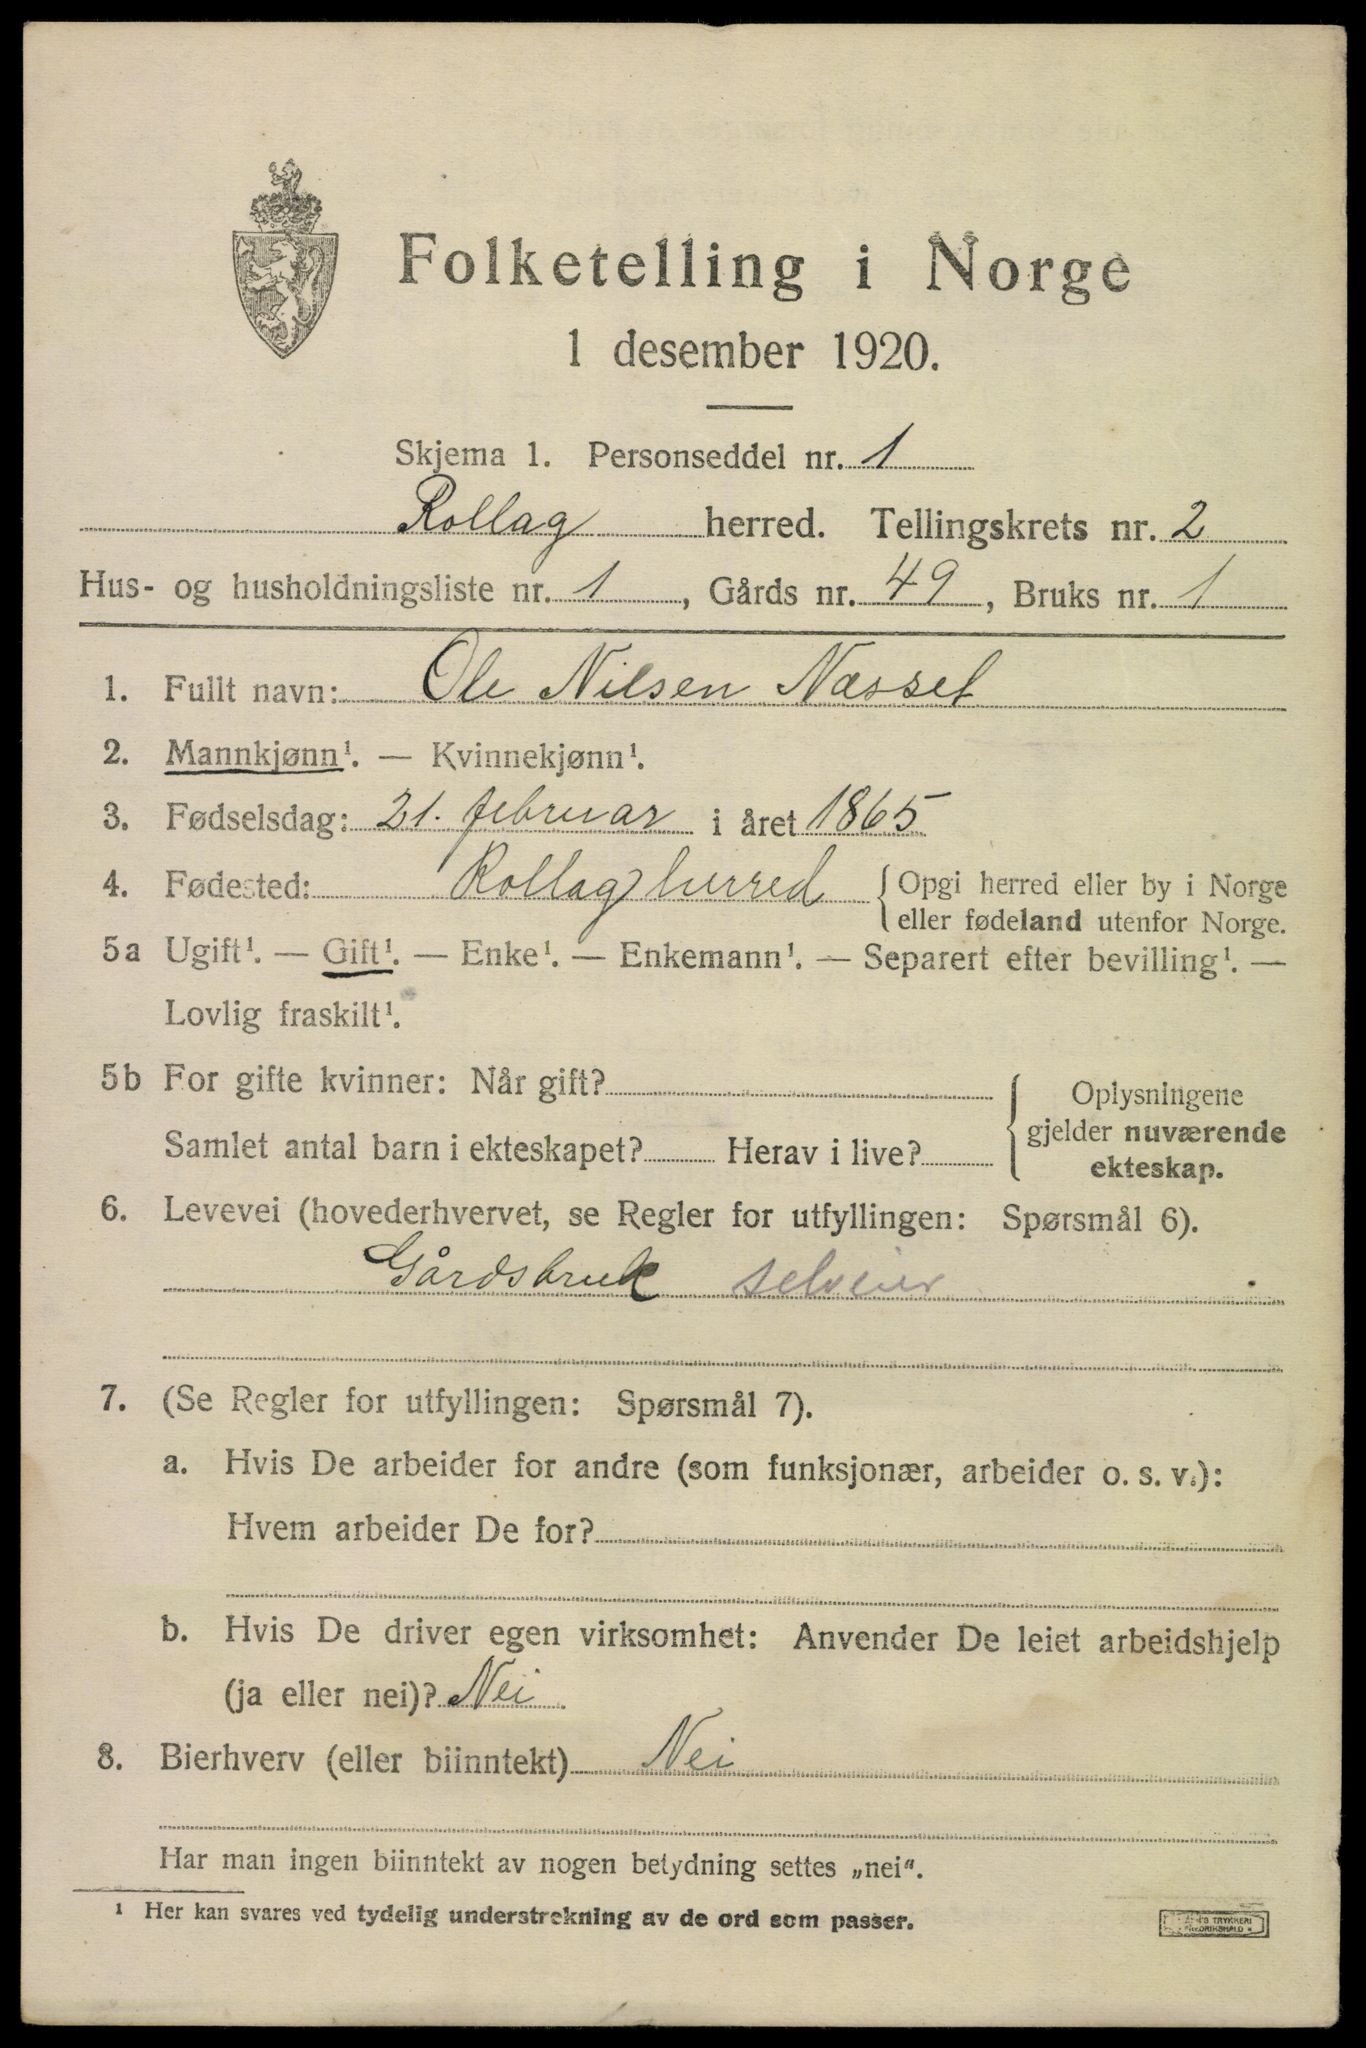 Folketelling i Norge
1 desember 1920.
Skjema 1. Personseddel nr. 1
Rollag herred. Tellingskrets nr. 2
Hus- og husholdningsliste nr. 1, Gårds nr. 49, Bruks nr. 1
1. Fullt navn: Ole Nilsen Næsset
2. Mannkjønn¹. — Kvinnekjønn¹.
3. Fødselsdag: 21. februar i året 1865
4. Fødested: Rollag herred { Opgi herred eller by i Norge
eller fødeland utenfor Norge.
5a Ugift¹. — Gift¹. — Enke¹. — Enkemann¹. — Separert efter bevilling¹. —
Lovlig fraskilt¹.
5b For gifte kvinner: Når gift?
Samlet antal barn i ekteskapet? Herav i live?
{ Oplysningene
gjelder nuværende
ekteskap.
6. Levevei (hovederhvervet, se Regler for utfyllingen: Spørsmål 6).
Gårdsbruk selveier
7. (Se Regler for utfyllingen: Spørsmål 7).
a. Hvis De arbeider for andre (som funksjonær, arbeider o. s. v.):
Hvem arbeider De for?
b. Hvis De driver egen virksomhet: Anvender De leiet arbeidshjelp
(ja eller nei)? Nei
8. Bierhverv (eller biinntekt) Nei
Har man ingen biinntekt av nogen betydning settes „nei“.
¹ Her kan svares ved tydelig understrekning av de ord som passer.
TRYKKERI